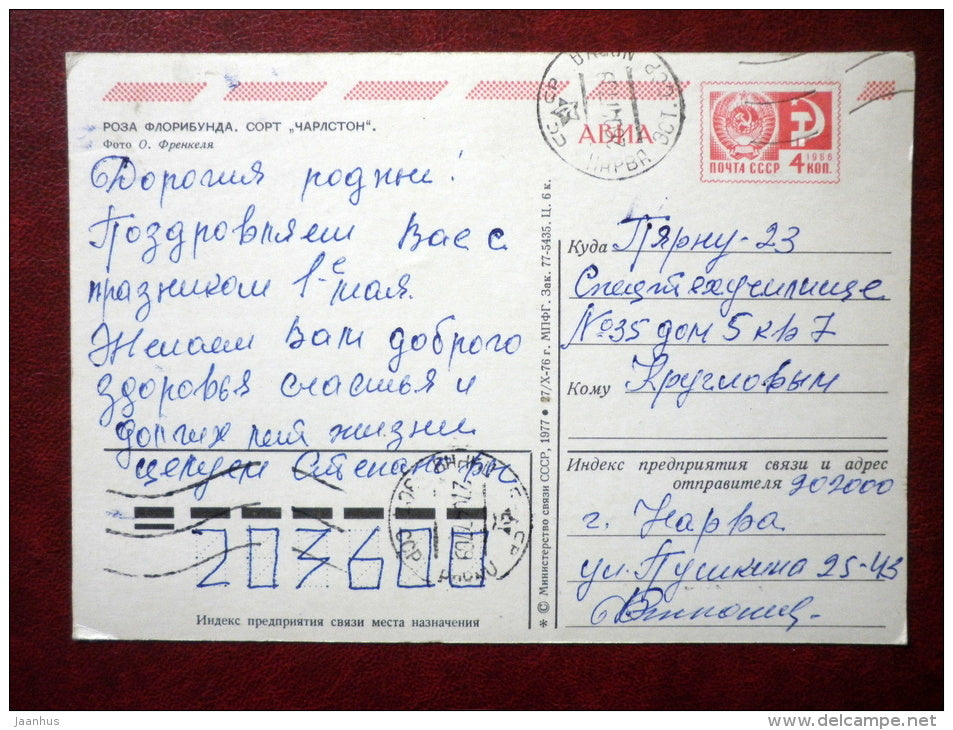 РОЗА ФЛОРИБУНДА. СОРТ „ЧАРЛСТОН“.
Фото О. Френкеля
АВИА
ПОЧТА СССР
1966
4 КОП.
Дорогия родные!
Поздровляем Вас с
празником 1е мая.
Желаем Вам доброго
здоровья счастья и
долгих лет жизни
целуем
Куда Пярну-23
Спецтехучилище
№35 дом 5 кв 7
Кому Кругловым
Индекс предприятия связи и адрес
отправителя 202000
г. Нарва
ул. Пушкина 25-43
203600
Индекс предприятия связи места назначения
* © Министерство связи СССР, 1977 • 27/X-76 г. МПФГ. Зак. 77-5435. Ц. 6 к.
НАРВА
Jaanhus
www.delcampe.net